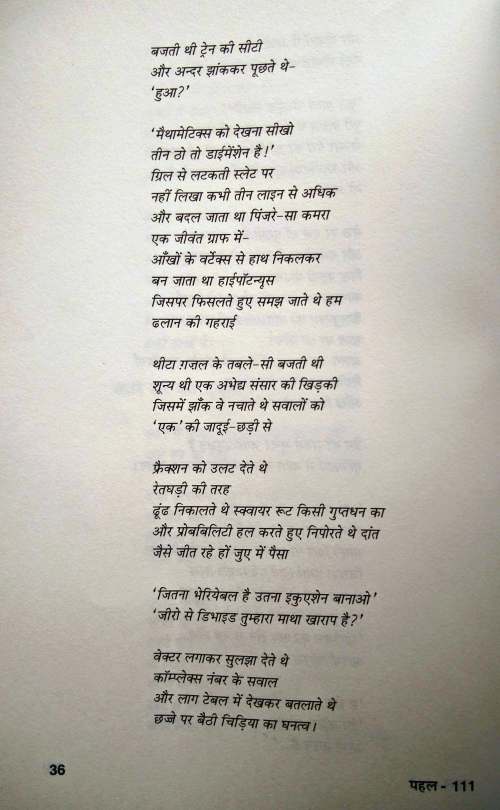 बजती थी ट्रेन की सीटी
और अन्दर झांककर पूछते थे-
‘हुआ?’
‘मैथामेटिक्स को देखना सीखो
तीन ठो तो डाईमेंशेन है!’
ग्रिल से लटकती स्लेट पर
नहीं लिखा कभी तीन लाइन से अधिक
और बदल जाता था पिंजरे-सा कमरा
एक जीवंत ग्राफ में-
आँखों के वर्टेक्स से हाथ निकलकर
बन जाता था हाईपॉटन्यूस
जिसपर फिसलते हुए समझ जाते थे हम
ढलान की गहराई
थीटा ग़ज़ल के तबले-सी बजती थी
शून्य थी एक अभेद्य संसार की खिड़की
जिसमें झाँक वे नचाते थे सवालों को
‘एक’ की जादूई-छड़ी से
फ्रैक्शन को उलट देते थे
रेतघड़ी की तरह
ढूंढ निकालते थे स्क्वायर रूट किसी गुप्तधन का
और प्रोबबिलिटी हल करते हुए निपोरते थे दांत
जैसे जीत रहे हों जुए में पैसा
‘जितना भेरियेबल है उतना इकुएशेन बानाओ’
‘जीरो से डिभाइड तुम्हारा माथा खाराप है?’
वेक्टर लगाकर सुलझा देते थे
कॉम्प्लेक्स नंबर के सवाल
और लाग टेबल में देखकर बतलाते थे
छज्जे पर बैठी चिड़िया का घनत्व।
36
पहल - 111